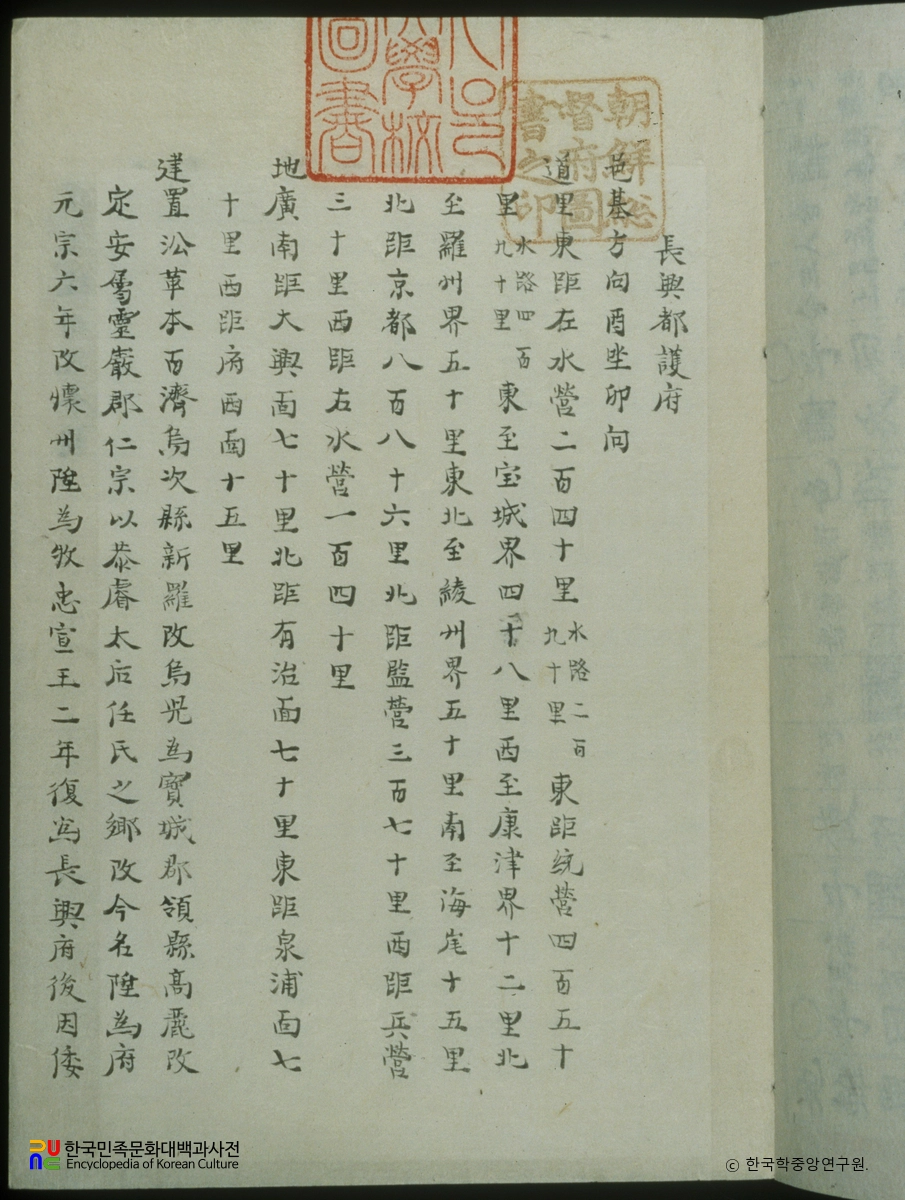 長興都護府
邑基方向酉坐卯向
道里東距左水營二百四十里水路二百九十里東距統營四百五十
里水路四百九十里東至宝城界四十八里西至康津界十二里北
至羅州界五十里東北至綾州界五十里南至海崖十五里
北距京都八百八十六里北距監營三百七十里西距兵營
三十里西距右水營一百四十里
地廣南距大興面七十里北距有治面七十里東距泉浦面七
十里西距府西面十五里
建置沿革本百濟烏次縣新羅改烏児為寶城郡領縣高麗改
定安屬靈巖郡仁宗以恭睿太后任氏之鄉改今名陞為府
元宗六年改懷州陞為牧忠宣王二年復為長興府後因倭
朝鮮総
督府圖
書之印
學校
圖書
한국민족문화대백과사전
Encyclopedia of Korean Culture
ⓒ 한국학중앙연구원.